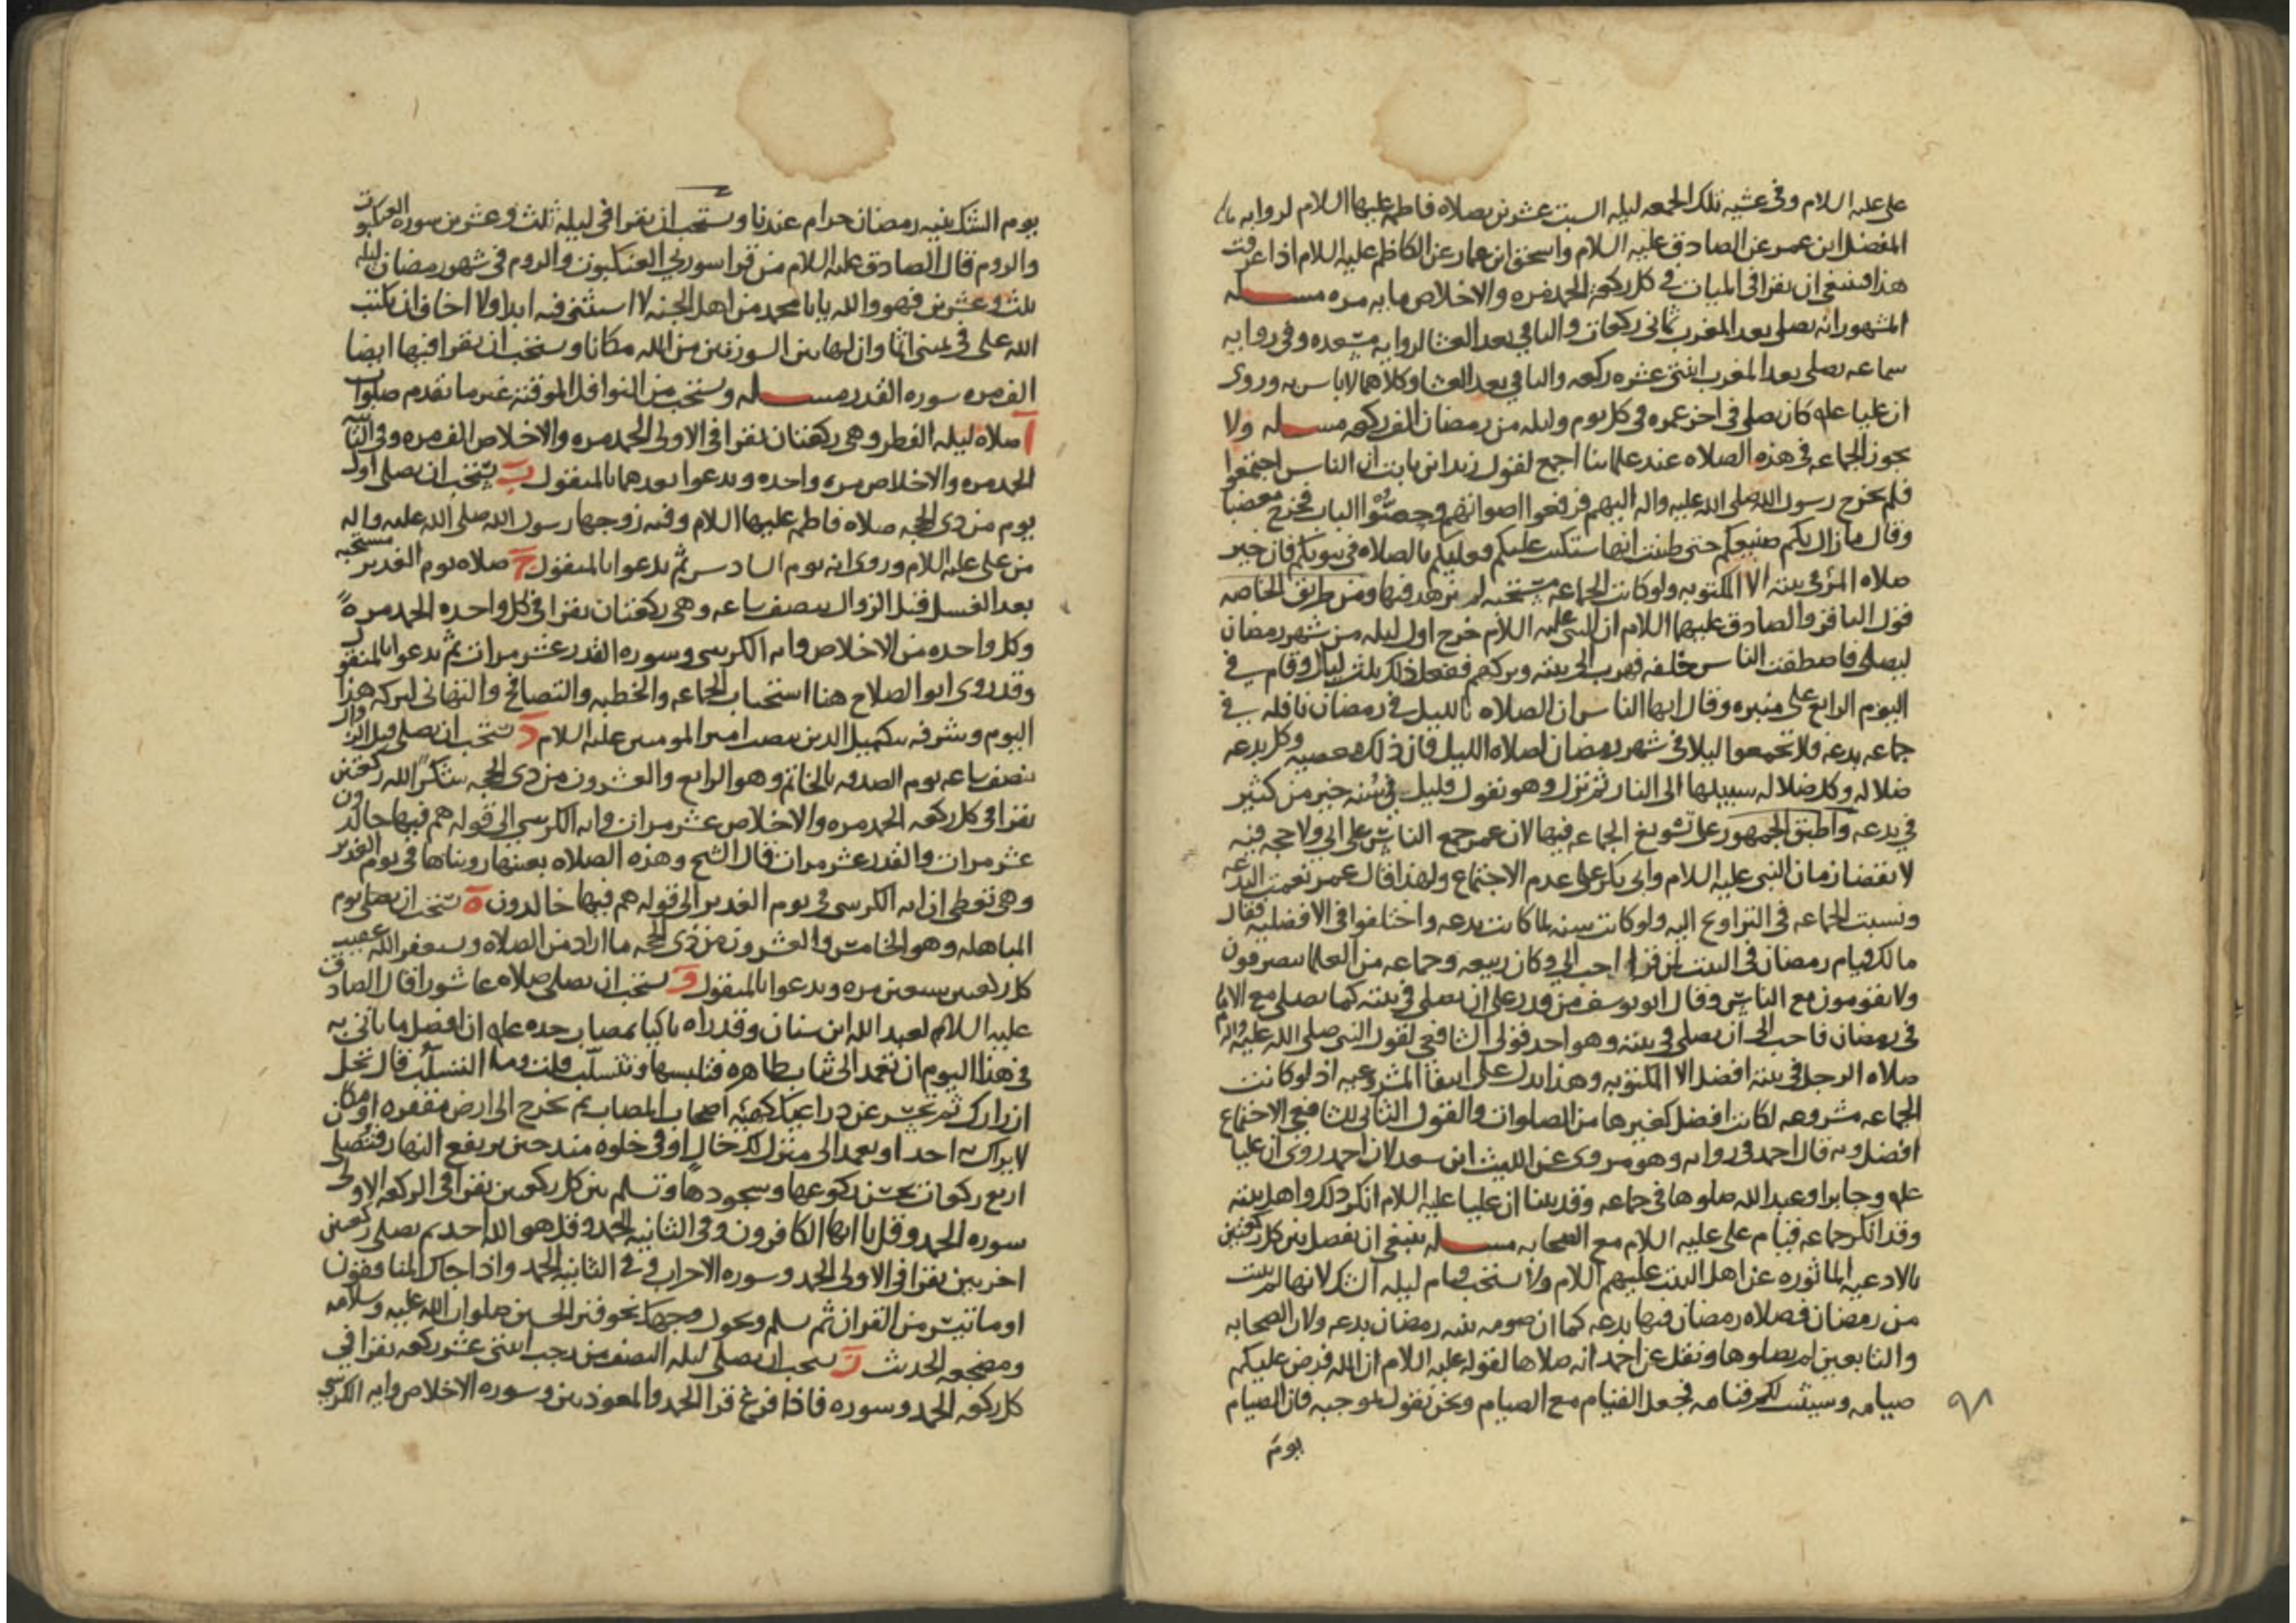 على عليه السلام وفي عشيه تلك الجمعه ليله السبت عشرين بصلاه فاطمه عليها السلام لروايه
المفضل ابن عمر عن الصادق عليه السلام واسحق ابن عمار عن الكاظم عليه السلام اذا عرفت
هذا فينبغي ان يقرا في المئات في كل ركعة الحمد مره والاخلاص مايه مره مسله
المشهور انه يصلي بعد المغرب ثماني ركعات والباقي بعد العشا لروايه مسعده وفي روايه
سماعه يصلي بعد المغرب اثنتي عشره ركعه والباقي بعد العشا وكلاهما لا باس به وروى
ان عليا عله كان يصلي في اخر عمره في كل يوم وليله من رمضان الف ركعه مسله ولا
يجوز الجماعه في هذه الصلاه عند علمائنا اجمع لقول زيد ابن ثابت ان الناس اجتمعوا
فلم يخرج رسول الله صلى الله عليه واله اليهم فرفعوا اصواتهم وحصبوا الباب فخرج مغضبا
وقال ما زال بكم صنيعكم حتى ظننت انها ستكتب عليكم فعليكم بالصلاه في بيوتكم فان خير
صلاه المرء في بيته الا المكتوبه ولو كانت الجماعه مستحبه لم يزهد فيها ومن طريق الخاصه
قول الباقر والصادق عليهما السلام ان النبي عليه السلام خرج اول ليله من شهر رمضان
ليصلي فاصطفت الناس خلفه فهرب الى بيته وتركهم ففعل ذلك ثلث ليال وقام في
اليوم الرابع على منبره وقال ايها الناس ان الصلاه بالليل في رمضان نافله في
جماعه بدعه فلا تجمعوا ليلا في شهر رمضان لصلاه الليل فان ذلك معصيه وكل بدعه
ضلاله وكل ضلاله سبيلها الى النار ثم نزل وهو يقول قليل في سنه خير من كثير
في بدعه واطبق الجمهور على تسويغ الجماعه فيها لان عمر جمع الناس على ابي ولا حجه فيه
لانقضا زمان النبي عليه السلام وابي بكر على عدم الاجتماع ولهذا قال عمر نعمت البدعه
ونسبت الجماعه في التراويح اليه ولو كانت سنه لما كانت بدعه واختلفوا في الافضليه فقال
مالك قيام رمضان في البيت لمن قوى احب الي وكان ربيعه وجماعه من العلما ينصرفون
ولا يقومون مع الناس وقال ابو يوسف من قدر على ان يصلي في بيته كما يصلي مع الامام
في رمضان فاحب الى ان يصلي في بيته وهو احد قولي الشافعي لقول النبي صلى الله عليه واله
صلاه الرجل في بيته افضل الا المكتوبه وهذا يدل على انتفا المشروعيه اذ لو كانت
الجماعه مشروعه لكانت افضل كغيرها من الصلوات والقول الثاني للشافعي الاجتماع
افضل وبه قال احمد في روايه وهو مروى عن الليث ابن سعد لان احمد روى ان عليا
عله وجابرا وعبد الله صلوها في جماعه وقد بينا ان عليا عليه السلام انكر ذلك واهل بيته
وقد انكر جماعه قيام على عليه السلام مع الصحابه مسله ينبغي ان يفصل بين كل ركعتين
بالادعيه الماثوره عن اهل البيت عليهم السلام ولا يستحب قيام ليله الشك لانها لم يثبت
من رمضان فصلاه رمضان فيها بدعه كما ان صومه بنيه رمضان بدعه ولان الصحابه
والتابعين لم يصلوها ونقل عن احمد انه صلاها لقوله عليه السلام ان الله فرض عليكم
صيامه وسننت لكم قيامه فجعل القيام مع الصيام ونحن نقول بموجبه فان الصيام
٩٨
يوم
يوم الشك بنيه رمضان حرام عندنا ويستحب ان يقرا في ليله ثلث وعشرين سوره العنكبوت
والروم قال الصادق عليه السلام من قرا سورتي العنكبوت والروم في شهر رمضان ليله
ثلث وعشرين فهو والله يابا محمد من اهل الجنه لا استثنى فيه ابدا ولا اخاف ان يكتب
الله على في يميني اثما وان لهاتين السورتين من الله مكانا ويستحب ان يقرا فيها ايضا
الف مره سوره القدر مسله ويستحب من النوافل الموقته غير ما تقدم صلوات
آ صلاه ليله الفطر وهي ركعتان يقرا في الاولى الحمد مره والاخلاص الف مره وفي الثانيه
الحمد مره والاخلاص مره واحده ويدعوا بعدهما بالمنقول ب يستحب ان يصلي اول
يوم من ذي الحجه صلاه فاطمه عليها السلام وفيه زوجها رسول الله صلى الله عليه واله
من على عليه السلام وروى انه يوم السادس ثم يدعوا بالمنقول ج صلاه يوم الغدير مستحبه
بعد الغسل قبل الزوال بنصف ساعه وهي ركعتان يقرا في كل واحده الحمد مره
وكل واحده من الاخلاص وايه الكرسي وسوره القدر عشر مرات ثم يدعوا بالمنقول
وقد روى ابو الصلاح هنا استحباب الجماعه والخطبه والتصافح والتهاني لبركه هذا
اليوم وشرفه بتكميل الدين بنصب امير المومنين عليه السلام د يستحب ان يصلي قبل الزوال
بنصف ساعه يوم الصدقه بالخاتم وهو الرابع والعشرون من ذي الحجه شكرا لله ركعتين
يقرا في كل ركعه الحمد مره والاخلاص عشر مرات وايه الكرسي الى قوله هم فيها خالدون
عشر مرات والقدر عشر مرات قال الشيخ وهذه الصلاه بعينها رويناها في يوم الغدير
وهي تعطى ان ايه الكرسي في يوم الغدير الى قوله هم فيها خالدون ه يستحب ان يصلي يوم
المباهله وهو الخامس والعشرون من ذي الحجه ما اراد من الصلاه ويستغفر الله عقيب
كل ركعتين سبعين مره ويدعوا بالمنقول و يستحب ان يصلي صلاه عاشورا قال الصادق
عليه السلام لعبد الله ابن سنان وقد راه باكيا بمصاب جده عله ان افضل ما ياتي به
في هذا اليوم ان تعمد الى ثياب طاهره فتلبسها وتتسلب قلت وما التسلب قال تحلل
ازرارك ثم تحسر عن ذراعيك كهيئه اصحاب المصاب ثم تخرج الى ارض مقفره او مكان
لا يراك به احد او تعمد الى منزل لك خال او في خلوه منذ حين يرتفع النهار فتصلي
اربع ركعات تحسن ركوعها وسجودها وتسلم بين كل ركعتين يقرا في الركعه الاولى
سوره الحمد وقل يا ايها الكافرون وفي الثانيه الحمد وقل هو الله احد ثم يصلي ركعتين
اخريين يقرا في الاولى الحمد وسوره الاحزاب وفي الثانيه الحمد واذا جاك المنافقون
او ما تيسر من القران ثم تسلم وتحول وجهك نحو قبر الحسين صلوات الله عليه وسلامه
ومضجعه الحديث ز يستحب ان يصلي ليله النصف من رجب اثنتي عشر ركعه يقرا في
كل ركعه الحمد وسوره فاذا فرغ قرا الحمد والمعوذتين وسوره الاخلاص وايه الكرسي